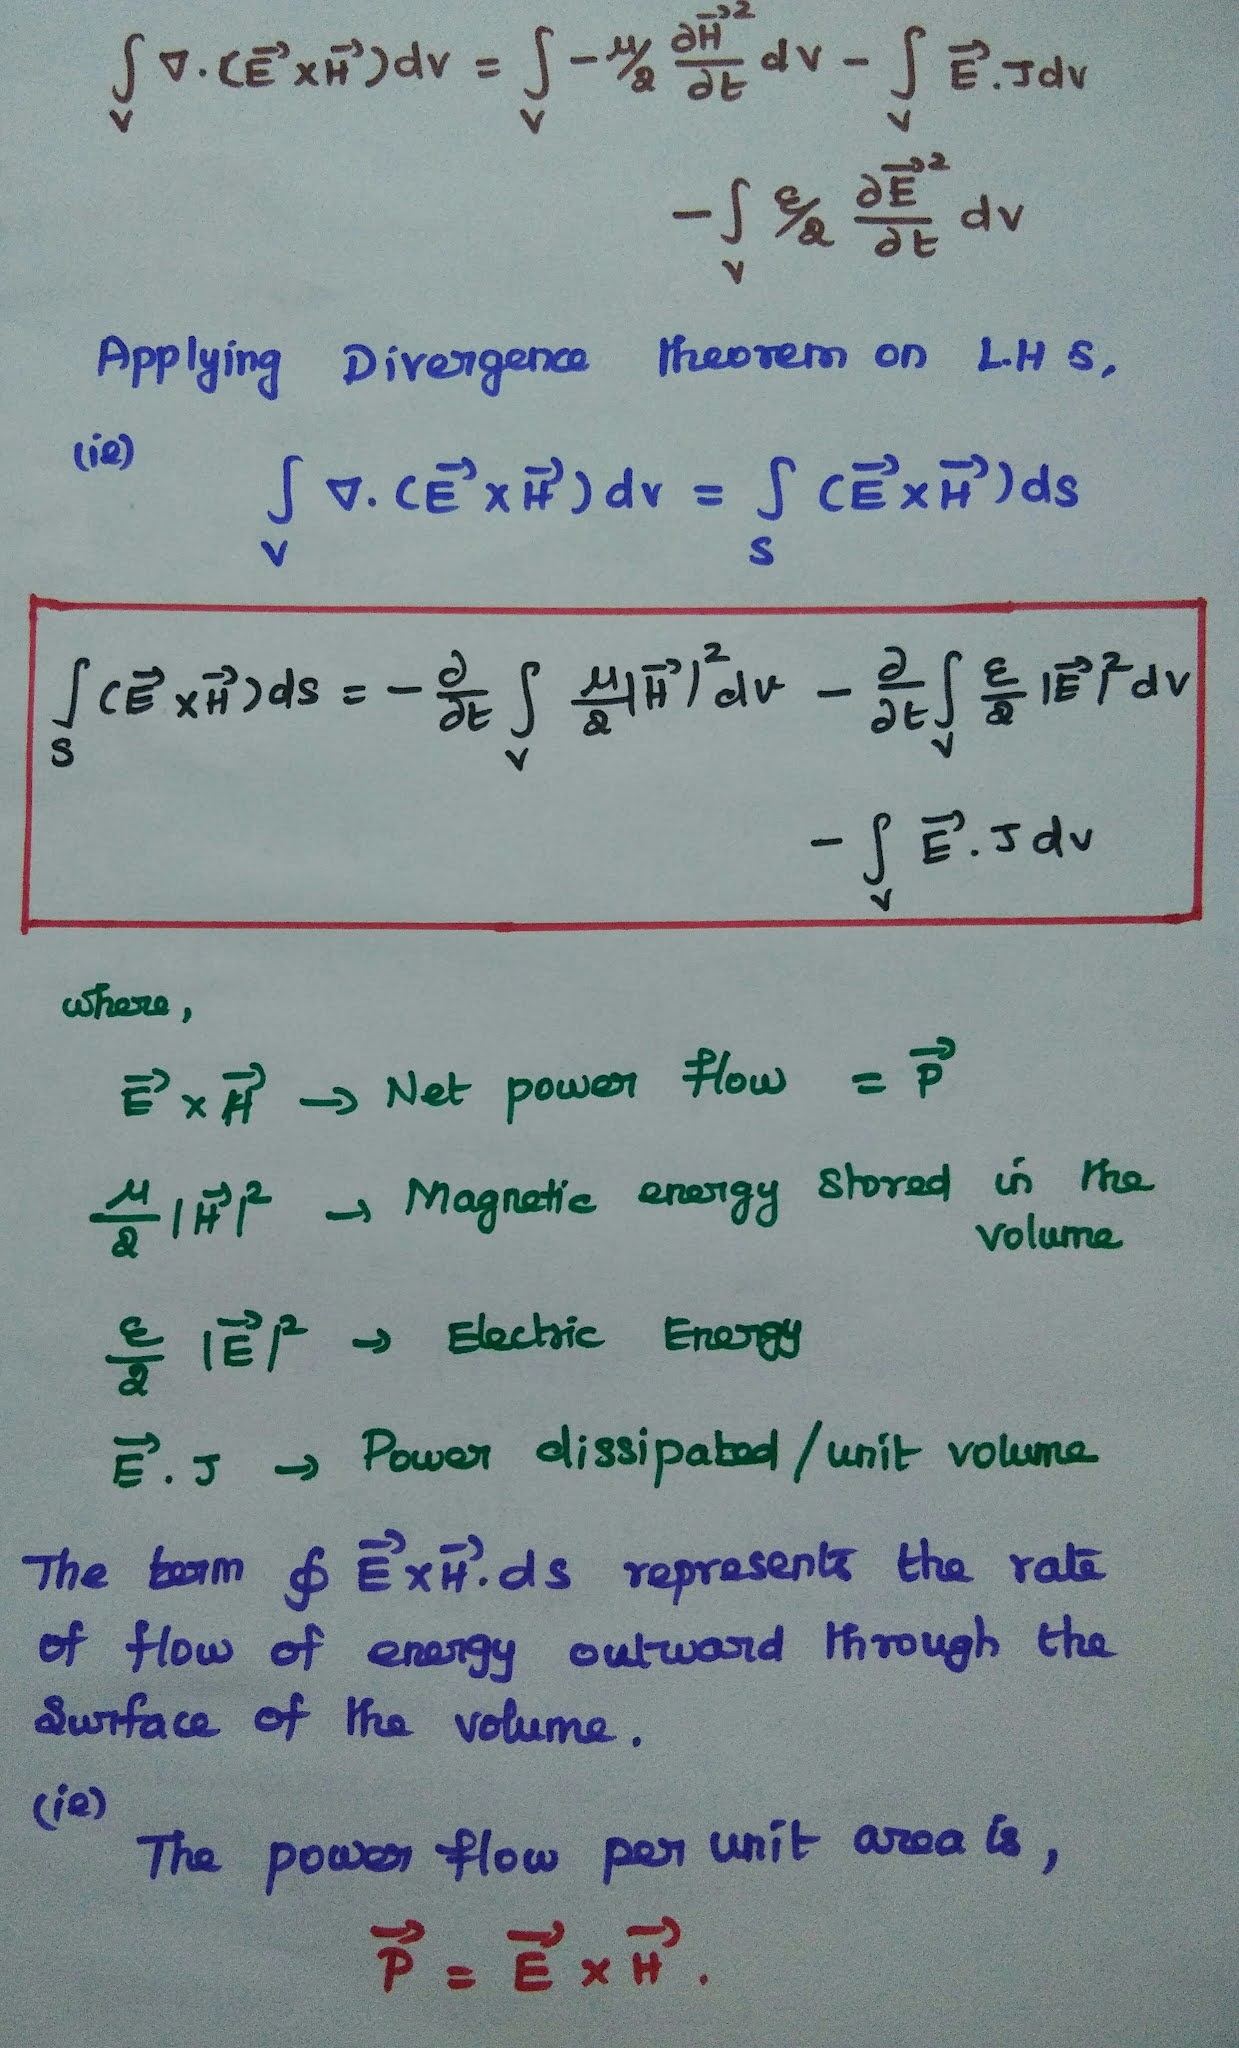 ∫_V ∇.(E⃗ x H⃗)dv = ∫_V -μ/2 ∂H⃗²/∂t dv - ∫_V E⃗.J dv
- ∫_V ε/2 ∂E⃗²/∂t dv
Applying Divergence theorem on L.H S,
(ie)
∫_V ∇.(E⃗ x H⃗)dv = ∫_S (E⃗ x H⃗)ds
∫_S (E⃗ x H⃗)ds = - ∂/∂t ∫_V μ/2 |H⃗|² dv - ∂/∂t ∫_V ε/2 |E⃗|² dv
- ∫_V E⃗.J dv
where,
E⃗ x H⃗ → Net power flow = P⃗
μ/2 |H⃗|² → Magnetic energy stored in the
volume
ε/2 |E⃗|² → Electric Energy
E⃗.J → Power dissipated/unit volume
The term ∮ E⃗ x H⃗.ds represents the rate
of flow of energy outward through the
surface of the volume.
(ie)
The power flow per unit area is,
P⃗ = E⃗ x H⃗.